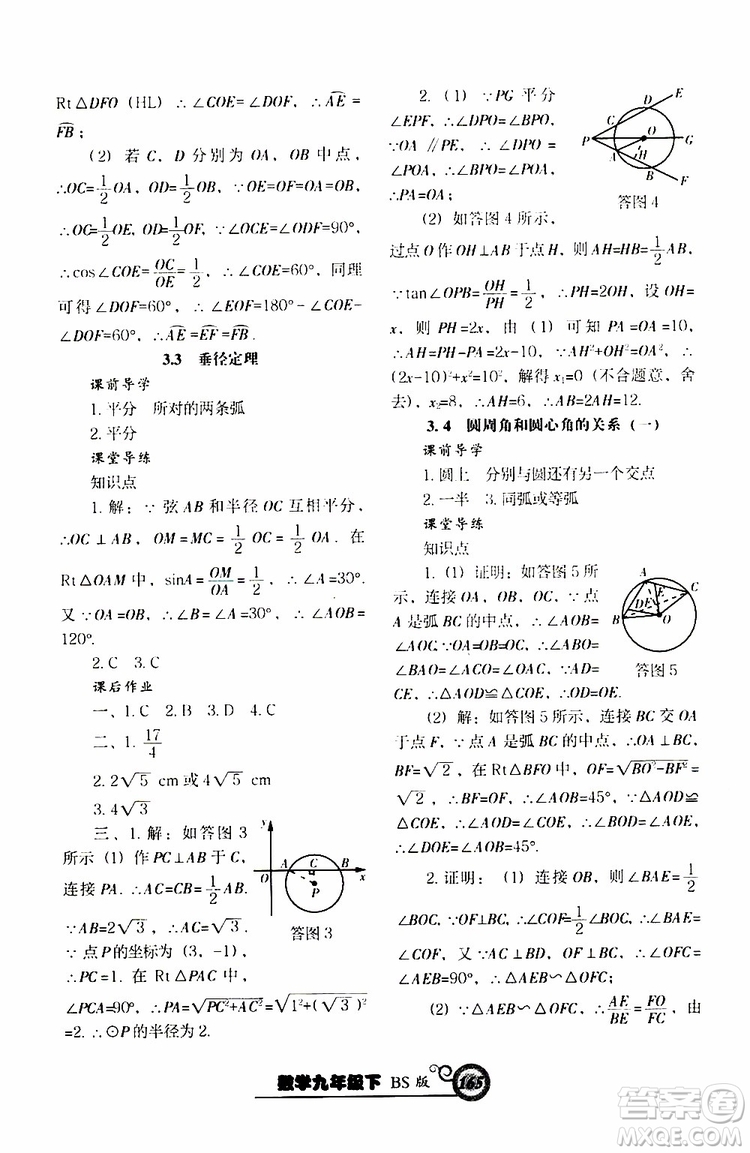 Rt△DFO（HL）∴∠COE=∠DOF，∴A͡E=
F͡B；
(2) 若 C，D 分别为 OA，OB 中点，
∴OC=1/2 OA，OD=1/2 OB，∵OE=OF=OA，
∴OC=1/2 OE，OD=1/2 OF，∵∠OCE=∠ODF=90°，
∴cos∠COE=OC/OE=1/2，∴∠COE=60°，同理
可得∠DOF=60°，∴∠EOF=180°-∠COE-
∠DOF=60°，∴A͡E=E͡F=F͡B.
3.3 垂径定理
课前导学
1.平分 所对的两条弧
2.平分
课堂导练
知识点
1.解：∵弦 AB 和半径 OC 互相平分，
∴OC⊥AB，OM=MC=1/2 OC=1/2 OA. 在
Rt△OAM 中，sinA=OM/OA=1/2，∴∠A=30°.
又∵OA=OB，∴∠B=∠A=30°，∴∠AOB=
120°.
2.C 3.C
课后作业
一、1.C 2.B 3.D 4.C
二、1.17/4
2.2√5 cm 或 4√5 cm
3.4√3
三、1.解：如答图 3
所示（1）作 PC⊥AB 于 C，
连接 PA. ∴AC=CB=1/2 AB.
∵AB=2√3，∴AC=√3.
∵点 P 的坐标为（3，-1），
∴PC=1. 在 Rt△PAC 中，
∠PCA=90°，∴PA=√(PC²+AC²)=√(1²+(√3)²)
=2. ∴⊙P 的半径为 2.
y
A C B
O x
P
答图 3
2.（1）∵PG 平分
∠EPF，∴∠DPO=∠BPO，
∵OA∥PE，∴∠DPO=
∠POA，∴∠BPO=∠POA，
∴PA=OA；
(2) 如答图 4 所示，
过点 O 作 OH⊥AB 于点 H，则 AH=HB=1/2 AB，
∵tan∠OPB=OH/PH=1/2，∴PH=2OH，设 OH=
x，则 PH=2x，由（1）可知 PA=OA=10，
∴AH=PH-PA=2x-10，∵AH²+OH²=OA²，∴
(2x-10)²+x²=10²，解得 x₁=0（不合题意，舍
去），x₂=8，∴AH=6，∴AB=2AH=12.
E
D
C
P O G
A H
B
F
答图 4
3.4 圆周角和圆心角的关系（一）
课前导学
1.圆上 分别与圆还有另一个交点
2.一半 3.同弧或等弧
课堂导练
知识点
1.（1）证明：如答图 5 所
示，连接 OA，OB，OC，∵点
A 是弧 BC 的中点，∴∠AOB=
∠AOC，∵OA=OB=OC，∴∠ABO=
∠BAO=∠ACO=∠OAC，∵AD=
CE，∴△AOD≌△COE，∴OD=OE.
A
C
D E F
B O
答图 5
(2) 解：如答图 5 所示，连接 BC 交 OA
于点 F，∵点 A 是弧 BC 的中点，∴OA⊥BC，
BF=√2，在 Rt△BFO 中，OF=√(BO²-BF²)=
√2，∴BF=OF，∴∠AOB=45°，∵△AOD≌
△COE，∴∠AOD=∠COE，∴∠DOE=∠AOC，
∵∠AOC=∠AOB，∴∠DOE=∠AOB=45°.
2.证明：（1）连接 OB，则∠BAE=1/2
∠BOC，∵OF⊥BC，∴∠COF=1/2∠BOC，∴∠BAE=
∠COF，又∵AC⊥BD，OF⊥BC，∴∠OFC=
∠AEB=90°，∴△AEB∽△OFC；
(2) ∵△AEB∽△OFC，∴AE/BE=FO/FC，由
数学九年级下 BS 版 165
答案圈
MXQE.COM